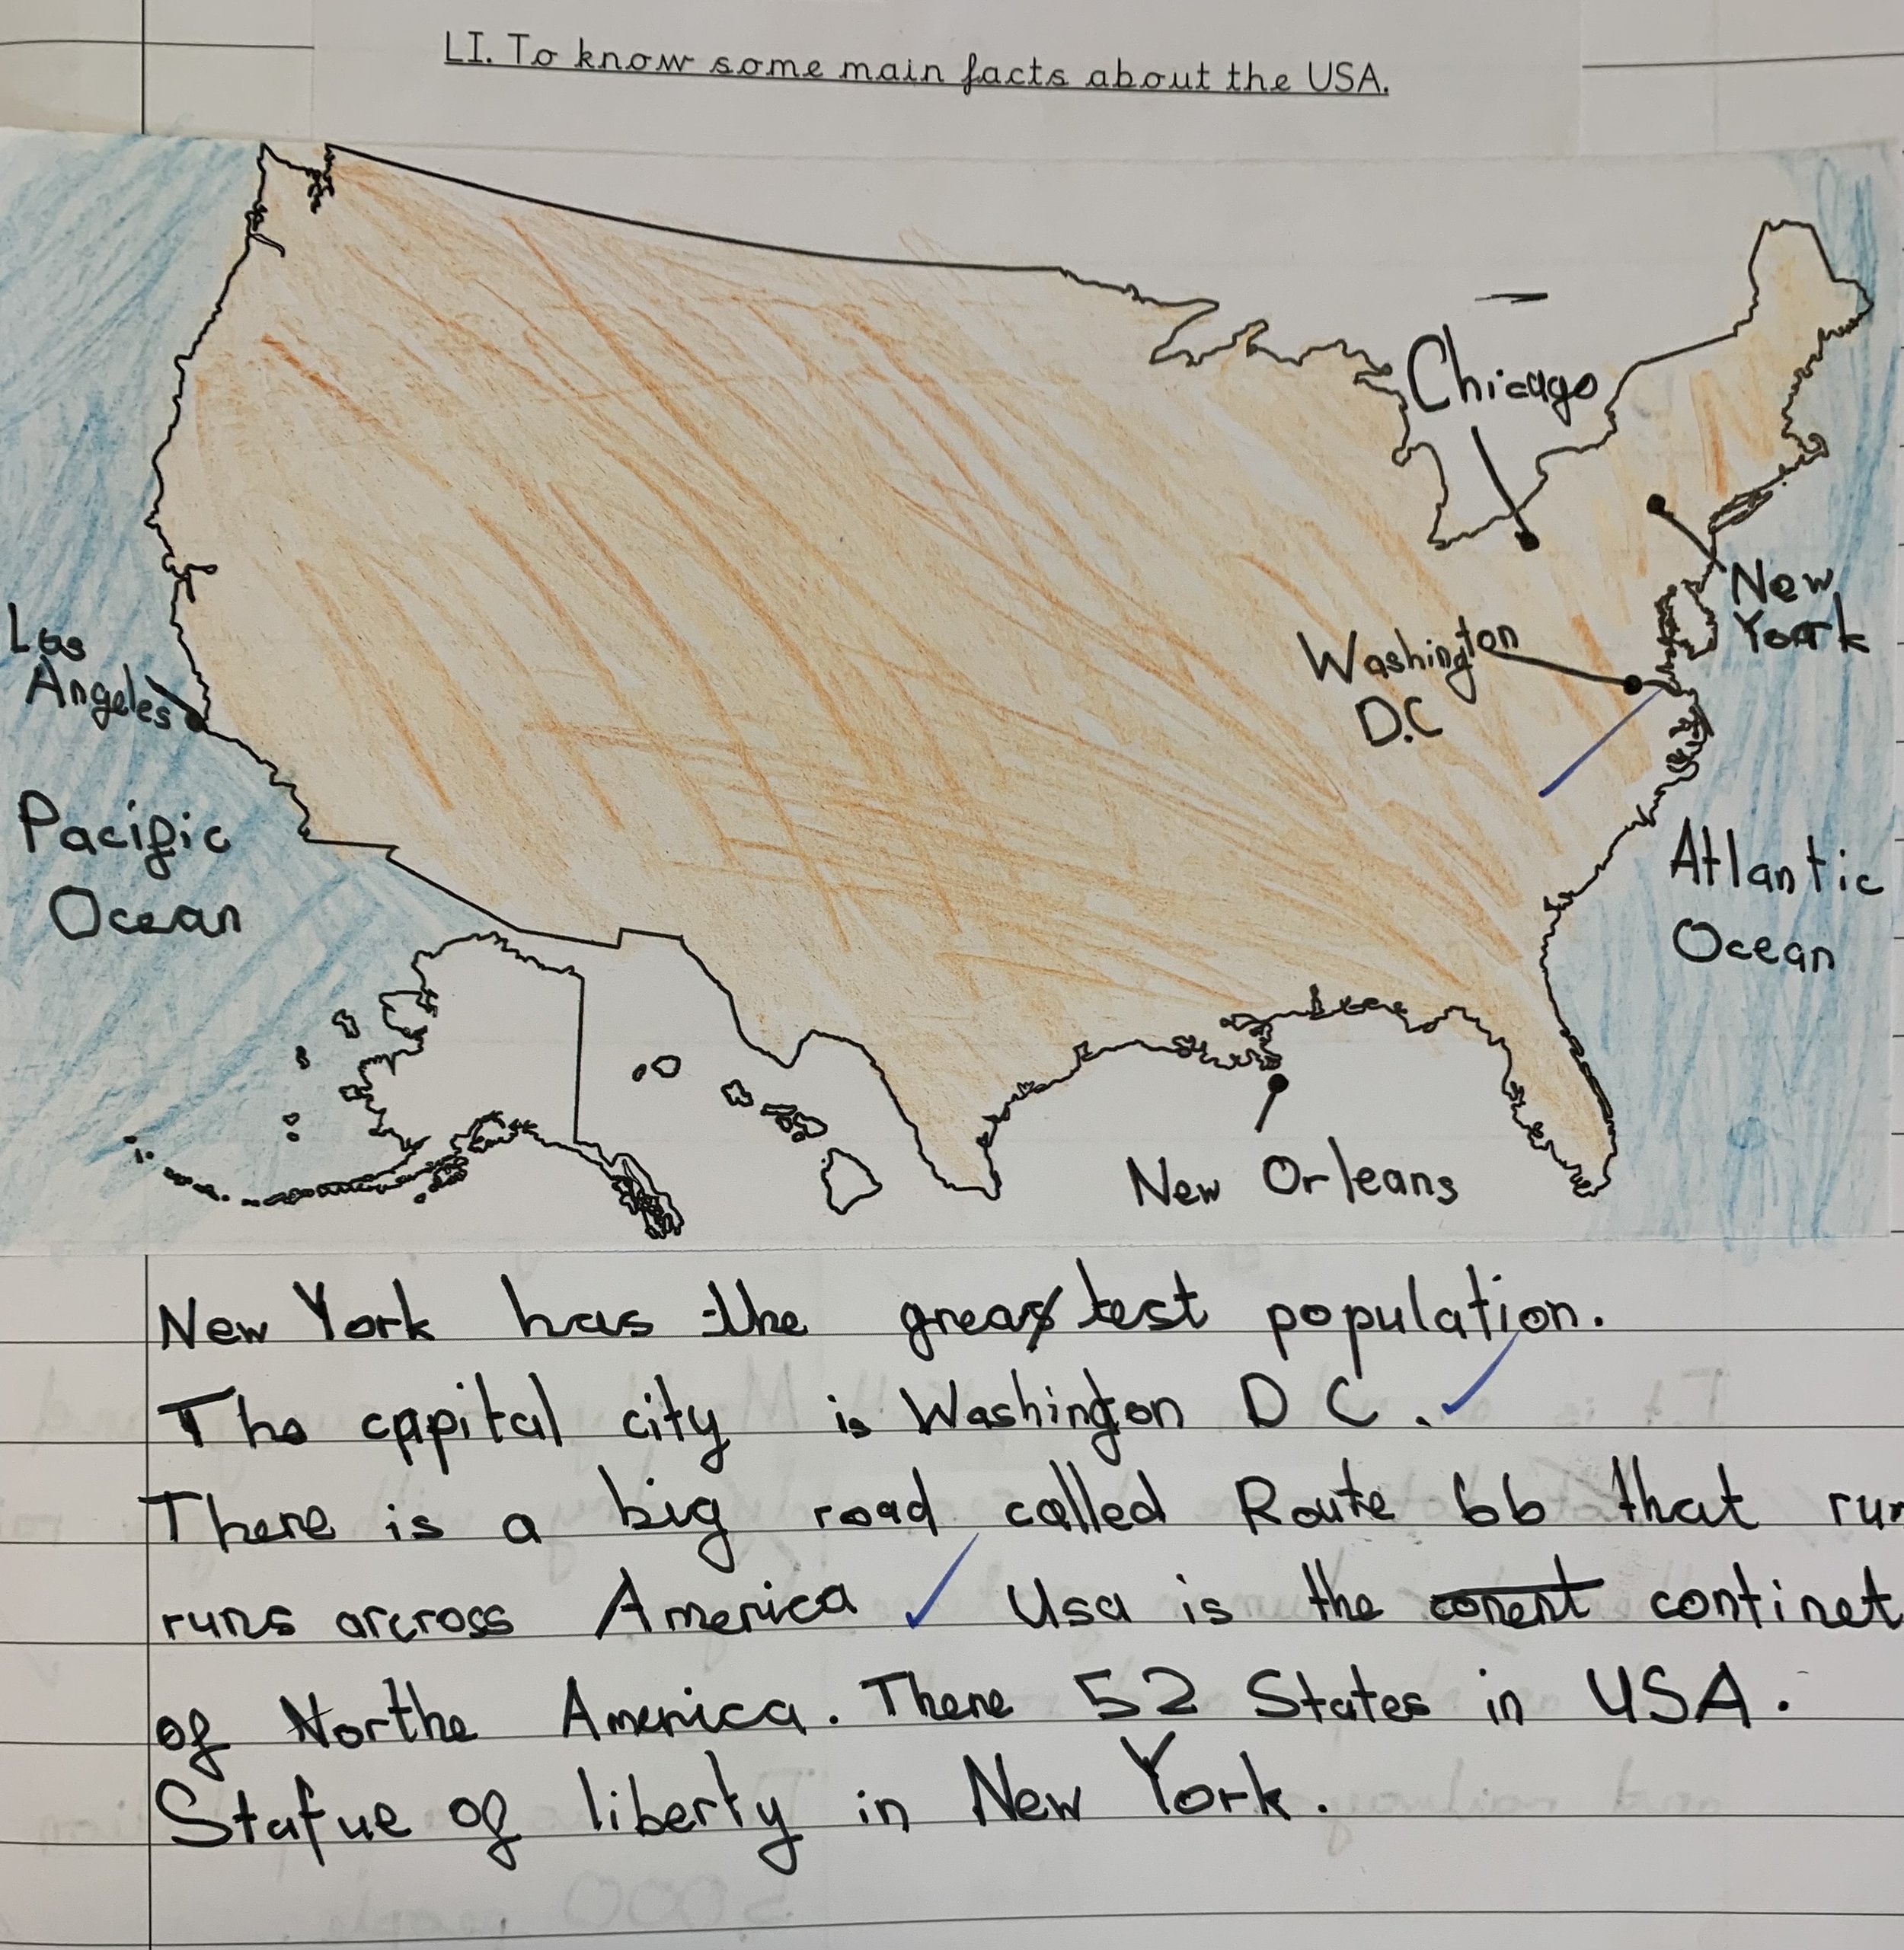 LI. To know some main facts about the USA.
Chicago
New
York
Los
Angeles
Washington
D.C
Pacific
Ocean
Atlantic
Ocean
New Orleans
New York has the greatest population.
The capital city is Washington D C.
There is a big road called Route 66 that run
runs arcross America Usa is the continet
of Northe America. There 52 States in USA.
Statue of liberty in New York.